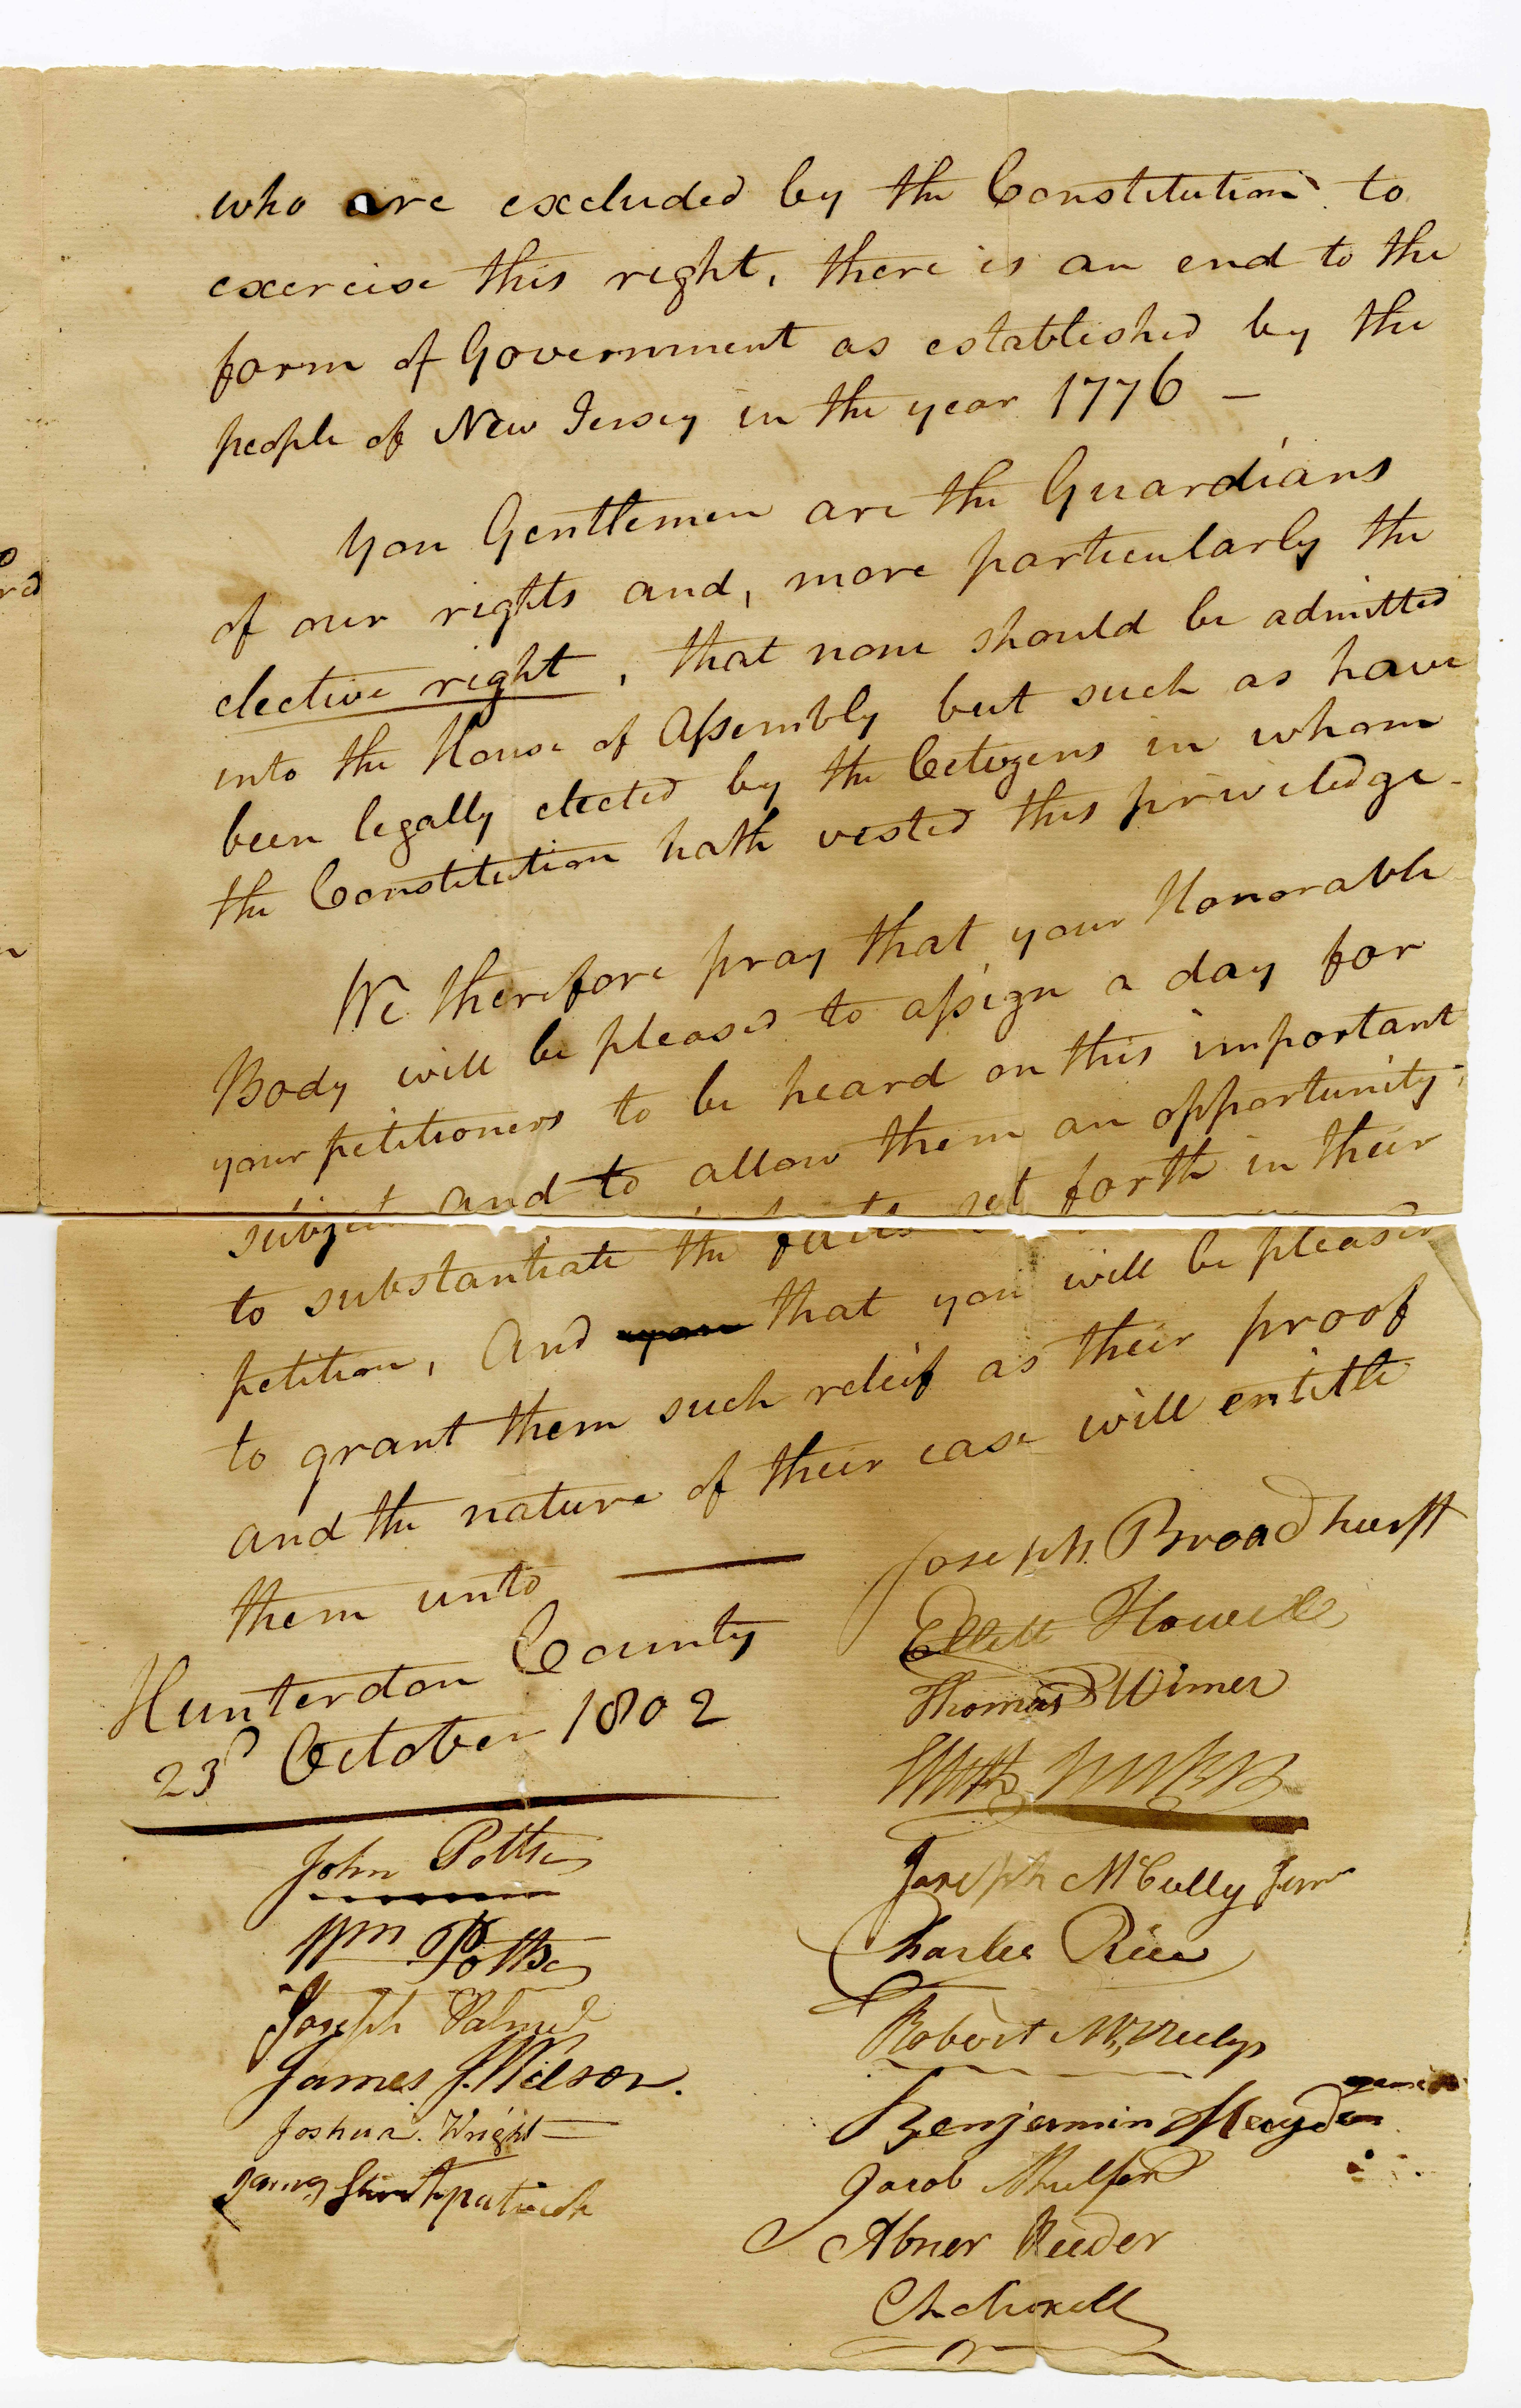 who are excluded by the Constitution to
exercise this right, there is an end to the
form of Government as established by the
people of New Jersey in the year 1776 —
You Gentlemen are the Guardians
of our rights and, more particularly the
elective right, that none should be admitted
into the House of Assembly but such as have
been legally elected by the Citizens in whom
the Constitution hath vested this priviledge -
We therefore pray that your Honorable
Body will be pleased to assign a day for
your petitioners to be heard on this important
subject and to allow them an opportunity
to substantiate the facts set forth in their
petition, And that you will be pleased
to grant them such releif as their proof
and the nature of their case will entitle
them unto —
Hunterdon County
23d October 1802
John Potts
Wm Potts
Joseph Palmer
James J. Wilson.
Joshua Wright
James
Joseph Broadhurst
Ellett Howell
Thomas Wimer
Joseph McCully Junr
Charles Rice
Robert McNeely
Benjamin Hayden
Jacob
Abner Reeder